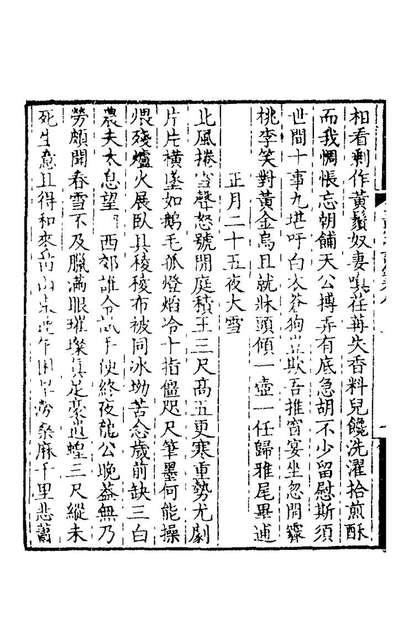 相看剩作黃鬚奴妻嗔荏苒失香料兒饑洗濯拾煎酥
而我惆悵忘朝餔天公摶弄有底急胡不少留慰斯須
世間十事九堪吁白衣蒼狗豈欺吾推窗宴坐忽開霽
桃李笑對黃金烏且就牀頭傾一壺一任歸雅尾畢逋
正月二十五夜大雪
北風捲雪聲怒號閒庭積玉三尺高五更寒重勢尤劇
片片橫墜如鵝毛孤燈焰冷十指僵咫尺筆墨何能操
煨殘爐火展臥具稜稜布被同冰坳苦念歲前缺三白
農夫太息望西郊誰令 手使終夜龍公晚益無乃
勞頗聞春雪不及臘滿眼璀璨眞足豪遺蝗三尺縱未
死生意且得和麥 桑麻千里悲蕭